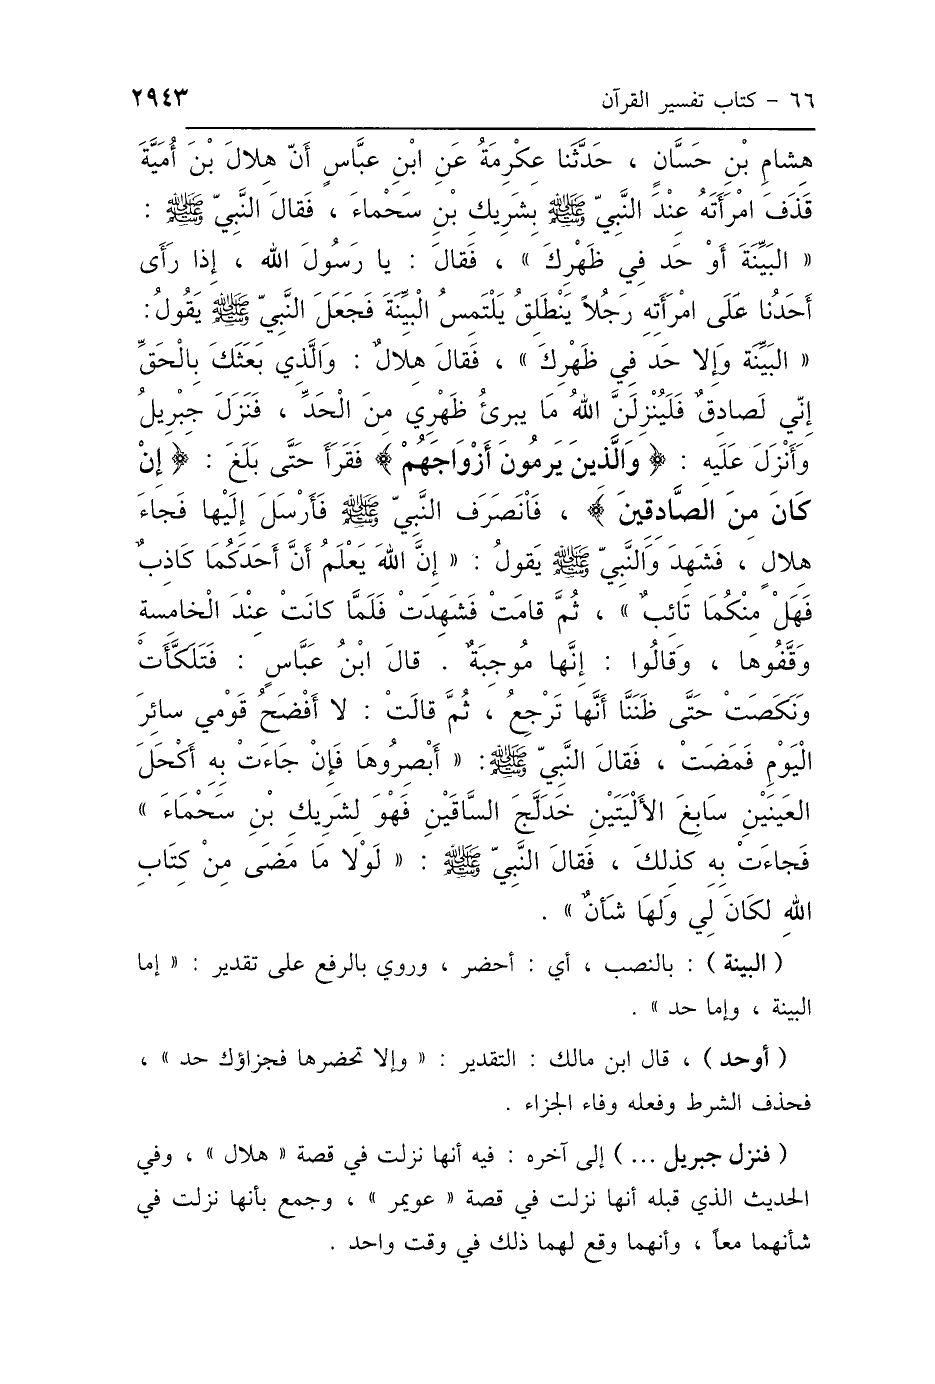 ٦٦ - كتاب تفسير القرآن ٢٩٤٣
هِشامِ بْنِ حَسَّانٍ ، حَدَّثَنا عِكْرِمَةُ عَنِ ابْنِ عبَّاسٍ أَنّ هِلالَ بْنَ أُمَيَّةَ
قَذَفَ امْرَأَتَهُ عِنْدَ النَّبيّ ﷺ بِشَرِيكِ بْنِ سَحْماءَ ، فَقالَ النَّبيّ ﷺ :
« البَيِّنَةَ أَوْ حَد فِي ظَهْرِكَ » ، فَقالَ : يا رَسُولَ الله ، إذا رَأى
أَحَدُنا عَلَى امْرَأتِهِ رَجُلاً يَنْطَلِقُ يَلْتَمِسُ الْبيِّنَةَ فَجَعَلَ النَّبيّ ﷺ يَقُولُ:
« البَيِّنَة وَإلا حَد فِي ظَهْرِكَ » ، فَقالَ هِلالٌ : وَالَّذي بَعَثَكَ بِالْحَقِّ
إنّي لَصادِقٌ فَلَيُنْزِلَنَّ اللهُ مَا يبرئُ ظَهْرِي مِنَ الْحَدِّ ، فَنَزَلَ جِبْرِيلُ
وَأَنْزَلَ عَلَيهِ : ﴿ وَالَّذِينَ يَرمُونَ أَزْوَاجَهُمْ ﴾ فَقَرَأَ حَتَّى بَلَغَ : ﴿ إنْ
كَانَ مِنَ الصَّادِقِينَ ﴾ ، فَانْصَرَف النَّبيّ ﷺ فَأَرْسَلَ إلَيْها فَجاءَ
هِلالٍ ، فَشَهِدَ وَالنَّبيّ ﷺ يَقولُ : « إنَّ اللهَ يَعْلَمُ أَنَّ أَحَدَكُمَا كَاذِبٌ
فَهَلْ مِنْكُمَا تَائِبٌ » ، ثُمَّ قامَتْ فَشَهِدَتْ فَلَمَّا كانَتْ عِنْدَ الْخامِسة
وَقَّفُوها ، وَقَالُوا : إنَّها مُوجِبَةٌ . قالَ ابْنُ عَبَّاسٍ : فَتَلَكَّأَتْ
وَنَكَصَتْ حَتَّى ظَنَنَّا أَنَّها تَرْجِعُ ، ثُمَّ قالَتْ : لا أَفْضَحُ قَوْمي سائِرَ
الْيَوْمِ فَمَضَتْ ، فَقالَ النَّبيّ ﷺ: « أَبْصِرُوهَا فَإنْ جَاءَتْ بِهِ أَكْحَلَ
العَينَيْنِ سَابِغَ الأَلْيَتَيْنِ خَدَلَّجَ السَّاقَيْنِ فَهْوَ لِشَرِيكِ بْنِ سَحْمَاءَ »
فَجاءَتْ بِهِ كذلِكَ ، فَقالَ النَّبيّ ﷺ : « لَوْلا مَا مَضَى مِنْ كِتَابِ
اللهِ لكَانَ لِي ولَهَا شَأنٌ » .
( البينة ) : بالنصب ، أي : أحضر ، وروي بالرفع على تقدير : « إما
البينة ، وإما حد » .
( أوحد ) ، قال ابن مالك : التقدير : « وإلا تحضرها فجزاؤك حد » ،
فحذف الشرط وفعله وفاء الجزاء .
( فنزل جبريل ... ) إلى آخره : فيه أنها نزلت في قصة « هلال » ، وفي
الحديث الذي قبله أنها نزلت في قصة « عويمر » ، وجمع بأنها نزلت في
شأنهما معاً ، وأنهما وقع لهما ذلك في وقت واحد .